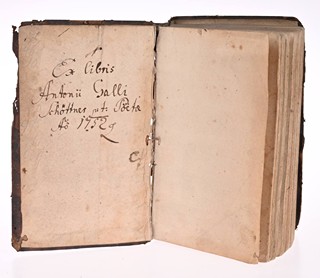 Ex libris
Antonii Galli
Schöttner p.t. Poëta
Aō 1752